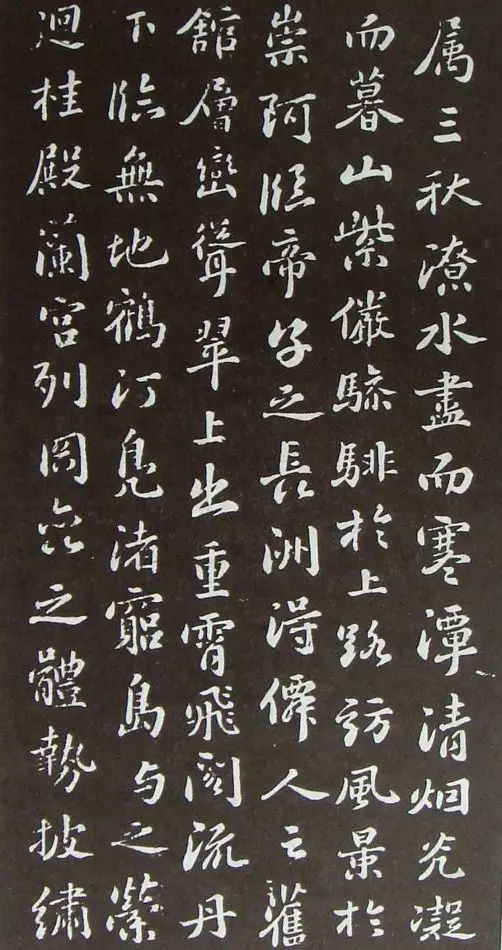 属三秋潦水盡而寒潭清烟光凝
而暮山紫儼驂騑於上路訪風景於
崇阿臨帝子之長洲得僊人之舊
館層巒聳翠上出重霄飛閣流丹
下臨無地鶴汀鳧渚窮島与之縈
迴桂殿蘭宫列岡峦之體勢披繡